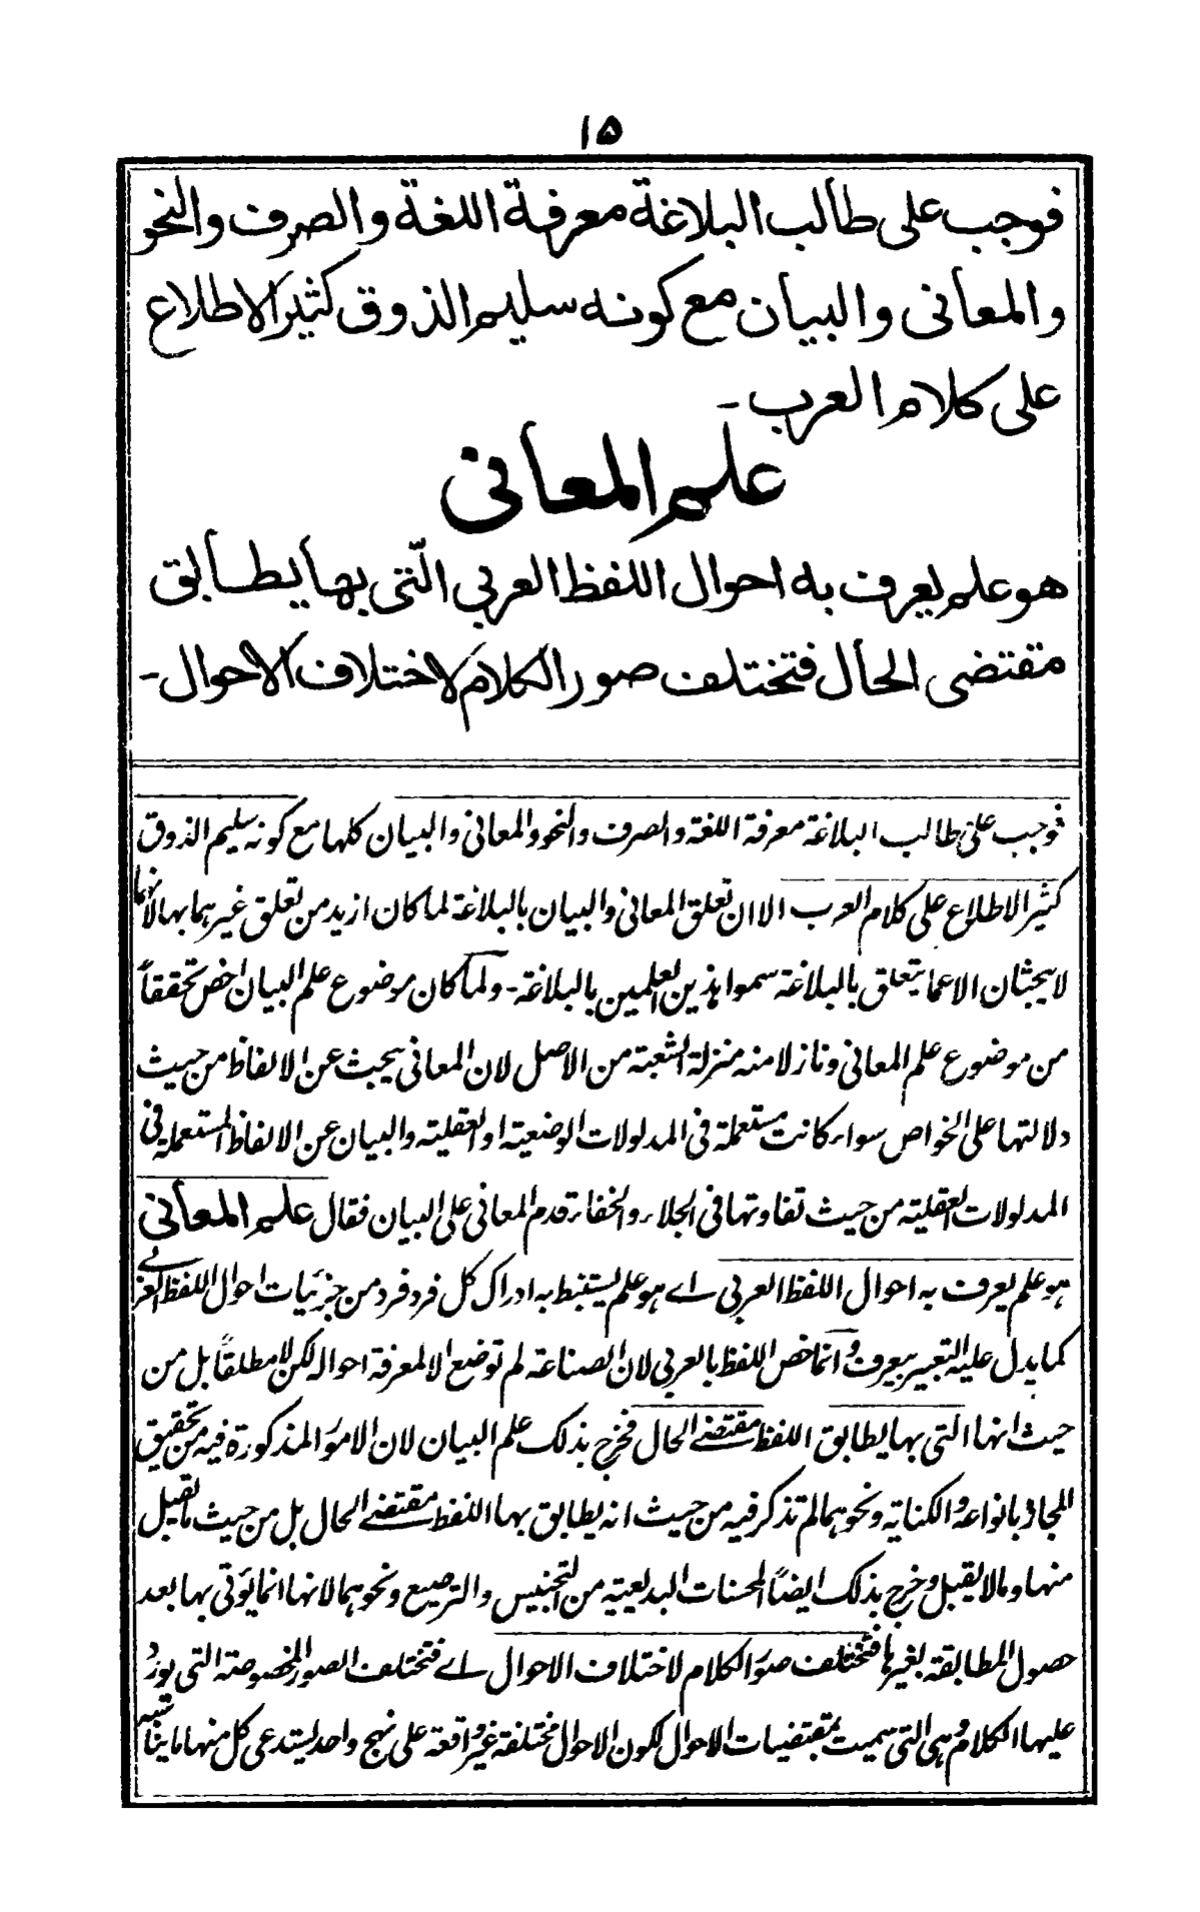 ١٥
فوجب على طالب البلاغة معرفة اللغة والصرف والنحو
والمعانى والبيان مع كونه سليم الذوق كثير الاطلاع
على كلام العرب -
علم المعانى
هو علم يعرف به احوال اللفظ العربي الّتى بها يطابق
مقتضى الحال فتختلف صور الكلام لاختلاف الاحوال -
فوجب على طالب البلاغة معرفة اللغة والصرف والنحو والمعاني والبيان كلها مع كونه سليم الذوق
كثير الاطلاع على كلام العرب الا ان تعلق المعانى والبيان بالبلاغة لما كان ازيد من تعلق غيرهما بها لانهما
لا يبحثان الا عما يتعلق بالبلاغة سموا هذين العلمين بالبلاغة - ولما كان موضوع علم البيان اخص تحققاً
من موضوع علم المعاني ونازلا منه منزلة الشعبة من الاصل لان المعانى يبحث عن الالفاظ من حيث
دلالتها على الخواص سواء كانت مستعملة فى المدلولات الوضعية او العقلية والبيان عن الالفاظ المستعملة في
المدلولات العقلية من حيث تفاوتها فى الجلاء والخفاء قدم المعانى على البيان فقال علم المعانى
هو علم يعرف به احوال اللفظ العربي اے هو علم يستنبط به ادراك كل فرد فرد من جزئيات احوال اللفظ العربے
كما يدل عليه التعبير بيعرف وانما خص اللفظ بالعربي لان الصناعة لم توضع الا لمعرفة احواله لكن لا مطلقاً بل من
حيث انها التى بها يطابق اللفظ مقتضے الحال فخرج بذلك علم البيان لان الامور المذكورة فيه من تحقيق
المجاز بانواعه والكناية ونحوهما لم تذكر فيه من حيث انه يطابق بها اللفظ مقتضے الحال بل من حيث ما يقبل
منها وما لا يقبل وخرج بذلك ايضاً المحسنات البديعية من التجنيس والترصيع ونحوهما لانها انما يؤتى بها بعد
حصول المطابقة بغيرها فتختلف صور الكلام لاختلاف الاحوال اے فتختلف الصور المخصوصة التى يورد
عليها الكلام وهى التى سميت بمقتضيات الاحوال لكون الاحوال مختلفة غير واقعة على نهج واحد ليستدعى كل منها ما يناسبه